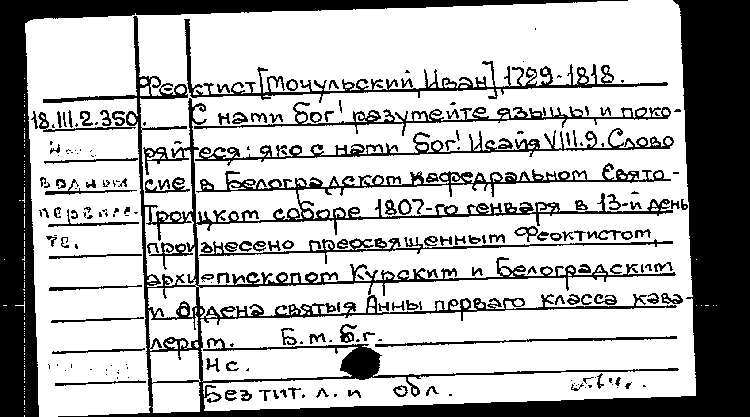 Феоктист [Мочульский, Иван], 1729-1818.
18.III.2.350. С нами Бог! разумейте языцы, и поко-
ряйтеся: яко с нами Бог! Исайя VIII.9. Слово
в одном сие в Белоградском кафедральном Свято-
перепле- Троицком соборе 1807-го генваря в 13-й день
те. произнесено преосвященным Феоктистом,
архиепископом Курским и Белоградским
и ордена святыя Анны перваго класса кава-
лером. Б.м., б.г.
Н с.
Без тит. л. и обл.